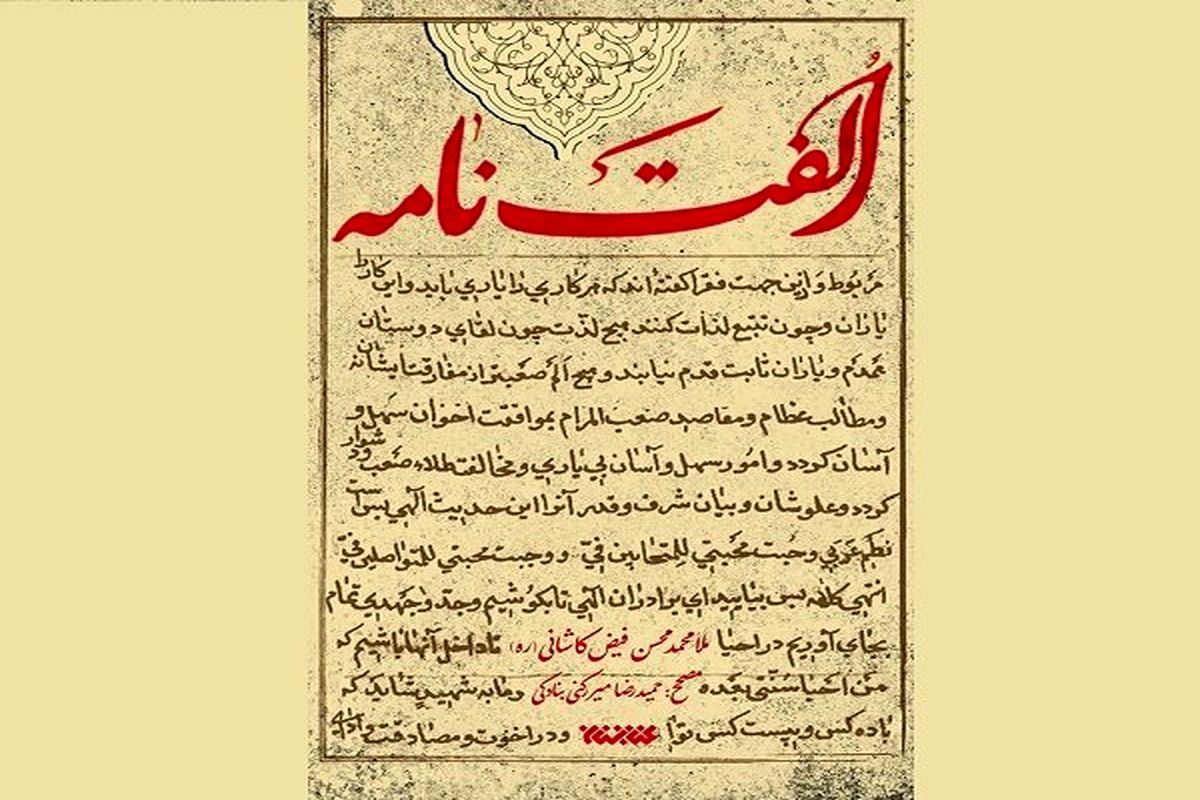 الفت نامه
مربوط و ازین جهت فقرا گفته‌اند که هر کاری را یاری باید و این کار را
یاران و چون تتبع لذات کنند هیچ لذت چون لقای دوستان
همدم و یاران ثابت قدم نیابند و هیچ الم صعبتر از مفارقت ایشان نه
ومطالب عظام ومقاصد صعب المرام بموافقت اخوان سهل و
آسان کردد وامور سهل وآسان بی یاری ومخالفت خلاء صعب ودشوار
کردد وعلو شان وبیان شرف وقدر آنرا این حدیث الهی بس است
نظم عربی وجبت محبتی للمتحابین فیّ ووجبت محبتی للمتواصلین فیّ
انتهی کلامه پس بیایید ای برادران الهی تا بکوشیم وجد وجهدی تمام
بجای آوریم در احیا ملامحمد محسن فیض کاشانی (ره) تا داخل آنها باشیم که
من احیا سنتی بعده مصحح: حمیدرضا میررکنی بنادکی ومابه شهید شاید که
یا ده کس و بیست کس توا ودر اخوت ومصادقت وادای